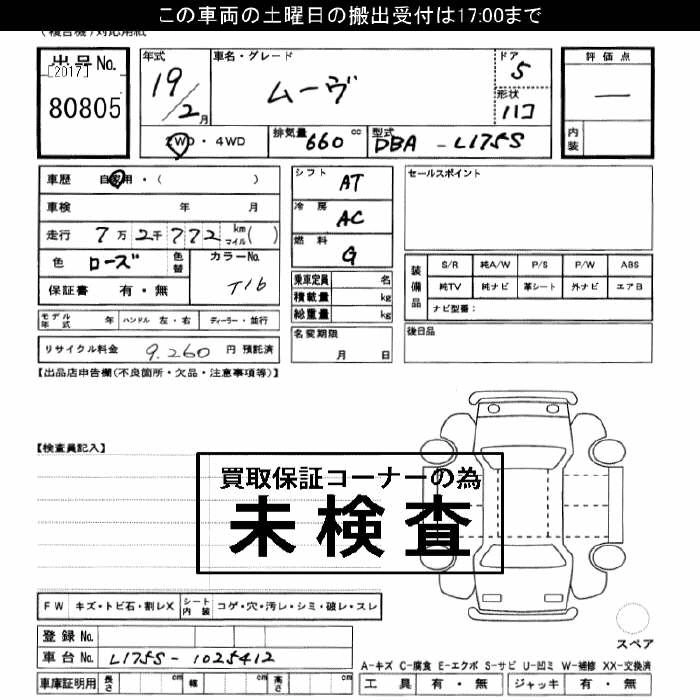 この車両の土曜日の搬出受付は17:00まで
(複合機)対応用紙
出品No.
[2017]
80805
年式
19/2月
車名・グレード
ムーヴ
ドア
5
形状
ハコ
評価点
―
内装
2WD・4WD
排気量 660 cc
型式 DBA - L175S
車歴 自家用・( )
車検 年 月
走行 7万2千772 km マイル( )
色 ローズ
色替
カラーNo.
T16
保証書 有・無
シフト AT
冷房 AC
燃料 G
乗車定員 名
積載量 kg
総重量 kg
セールスポイント
装備品
S/R 純A/W P/S P/W ABS
純TV 純ナビ 革シート 外ナビ エアB
ナビ型番:
モデル年式 年 ハンドル 左・右 ディーラー・並行
名変期限
月 日
後日品
リサイクル料金 9.260 円 預託済
【出品店申告欄(不良箇所・欠品・注意事項等)】
【検査員記入】
買取保証コーナーの為
未検査
FW キズ・トビ石・割レX シート内装 コゲ・穴・汚レ・シミ・破レ・スレ
登録No.
車台No. L175S-1025412
車庫証明用 長さ cm 幅 cm 高さ cm
スペア
A-キズ C-腐食 E-エクボ S-サビ U-凹ミ W-補修 XX-交換済
工具 有・無 ジャッキ 有・無